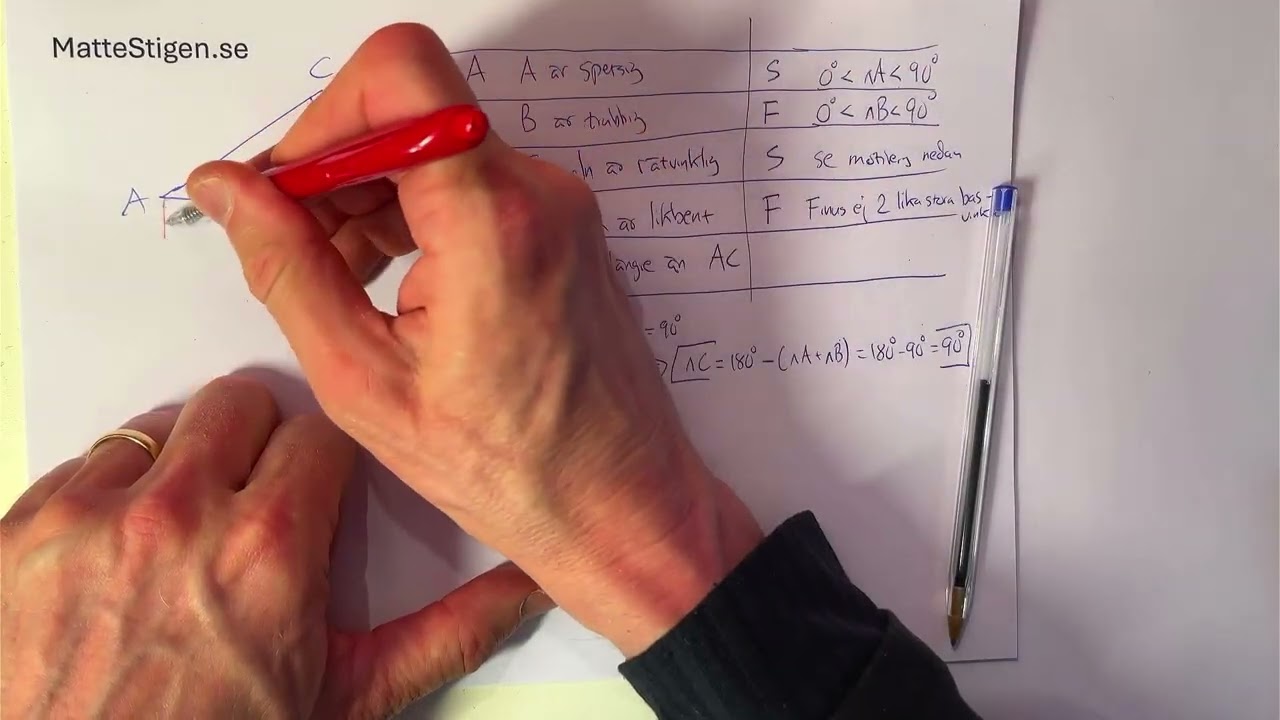 MatteStigen.se
C
A
A A är spetsig S 0° < ∧A < 90°
B är trubbig F 0° < ∧B < 90°
är rätvinklig S se motiverg nedan
är likbent F Finns ej 2 lika stora bas-
längre än AC
= 90°
∧C = 180° - (∧A + ∧B) = 180° - 90° = 90°